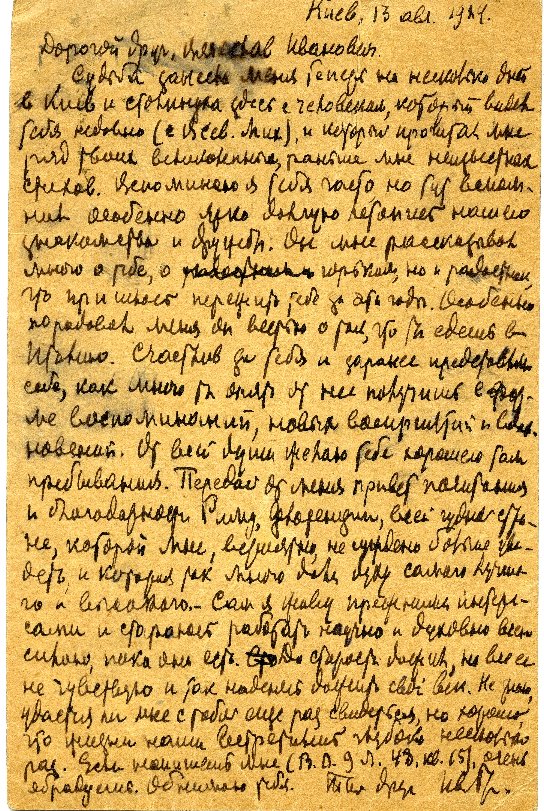 Киев, 13 авг. 1924.
Дорогой друг, Вячеслав Иванович.
Судьба занесла меня теперь на несколько дней
в Киев и столкнула здесь с человеком, который видел
тебя недавно (с Всев. Мих), и который прочитал мне
ряд твоих великолепных, раньше мне неизвестных
стихов. Вспоминаю я тебя часто но тут вспом-
нил особенно ярко долгую летопись нашего
знакомства и дружбы. Он мне рассказывал
много о тебе, о горьком, но и радостном,
что пришлось пережить тебе за эти годы. Особенно
порадовал меня он вестью о том, что ты едешь в
Италию. Счастлив за тебя и заранее представляю
себе, как много ты опять от нее получишь в фор-
ме воспоминаний, новых восприятий и вдох-
новений. От всей души желаю тебе хорошего там
пребывания. Передай от меня привет почитания
и благодарности Риму, Флоренции, всей чудной стра-
не, которой мне, вероятно, не суждено больше уви-
деть, и которая так много дала духу самого лучше-
го и высокого. - Сам я живу прежними интере-
сами и стараюсь работать научно и духовно всею
силою, пока она есть. До старости дожил, но все ее
не чувствую и так надеюсь дожить свой век. Не знаю,
удастся ли мне с тобой еще раз свидеться, но хорошо
что жизни наши встретились глубоко несколько
раз. Если напишешь мне (В. О. 9 л. 48. кв. 15), очень
обрадуешь. Обнимаю тебя. Твой друг Ив. Гр.